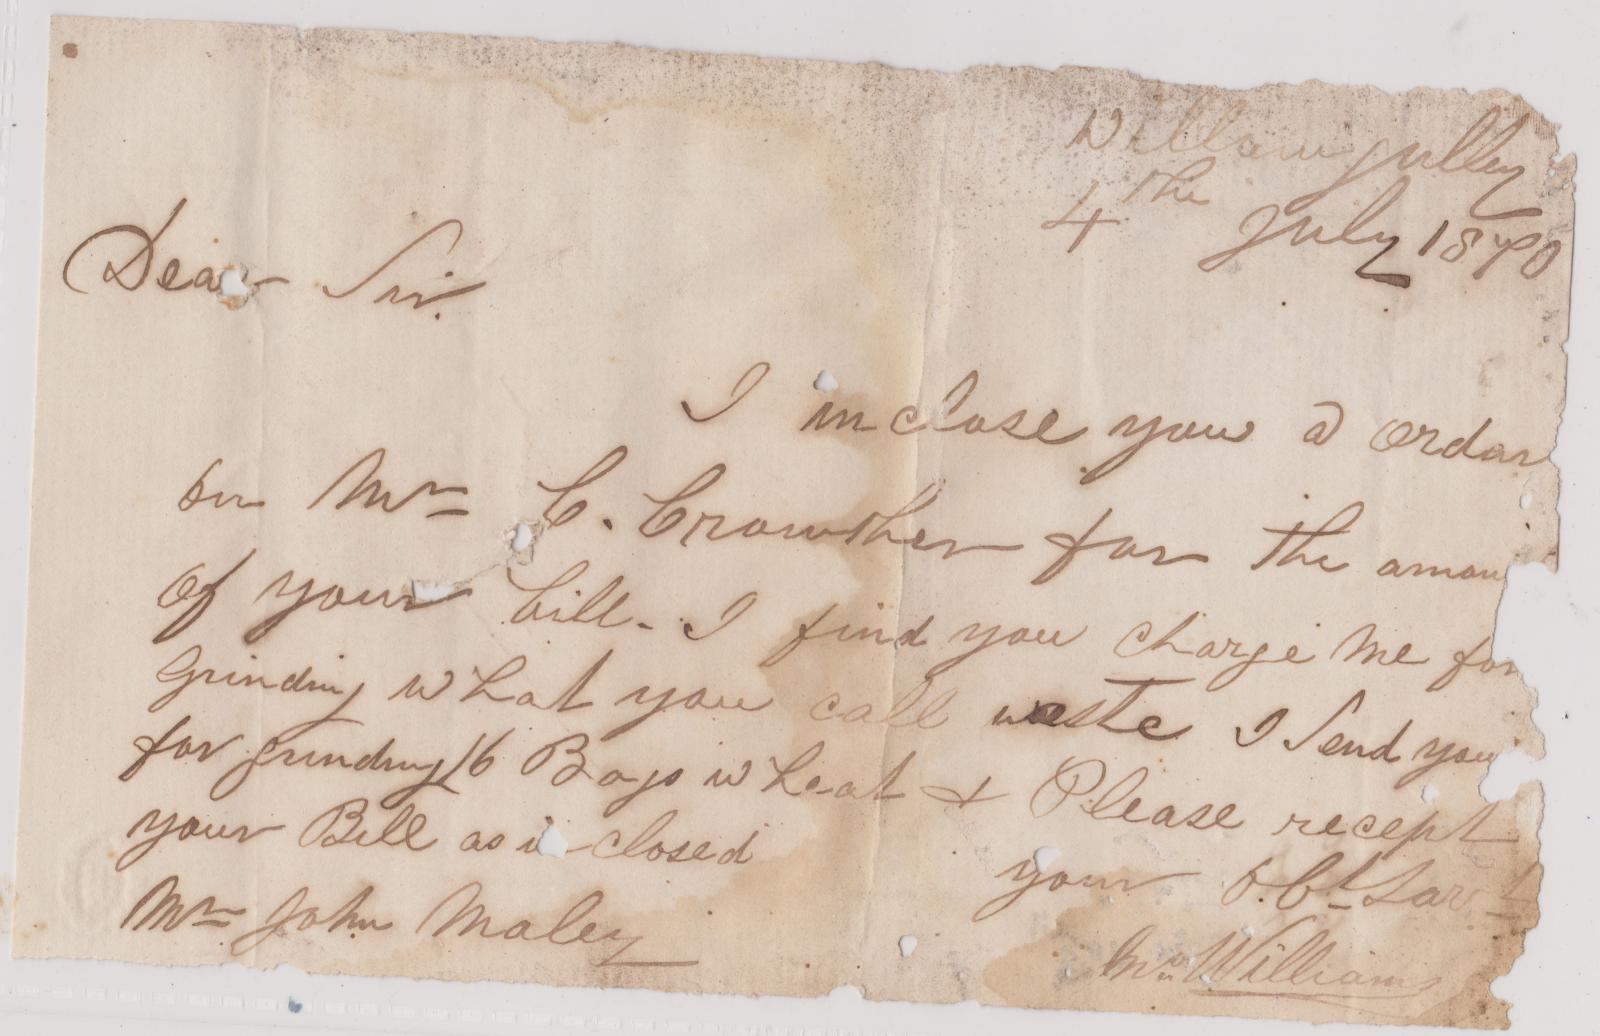 Willow gulley
4 the July 1870
Dear Sir.
I inclose you a ordar
on Mr C. Crowther for the amou
of your bill - I find you charge me for
Grinding what you call waste I Send you
for grinding 16 Bags wheat & Please recept
your Bill as inclosed
your Obt Sarvt
Mr John Maley
Williams